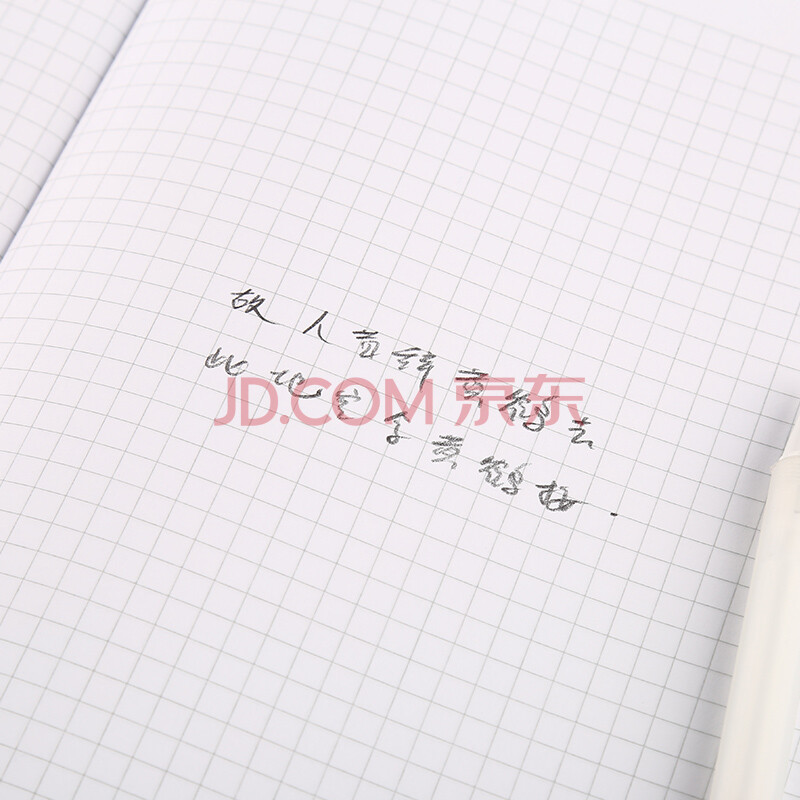 故人昔辞黄鹤去
此地空余黄鹤楼.
JD.COM 京东